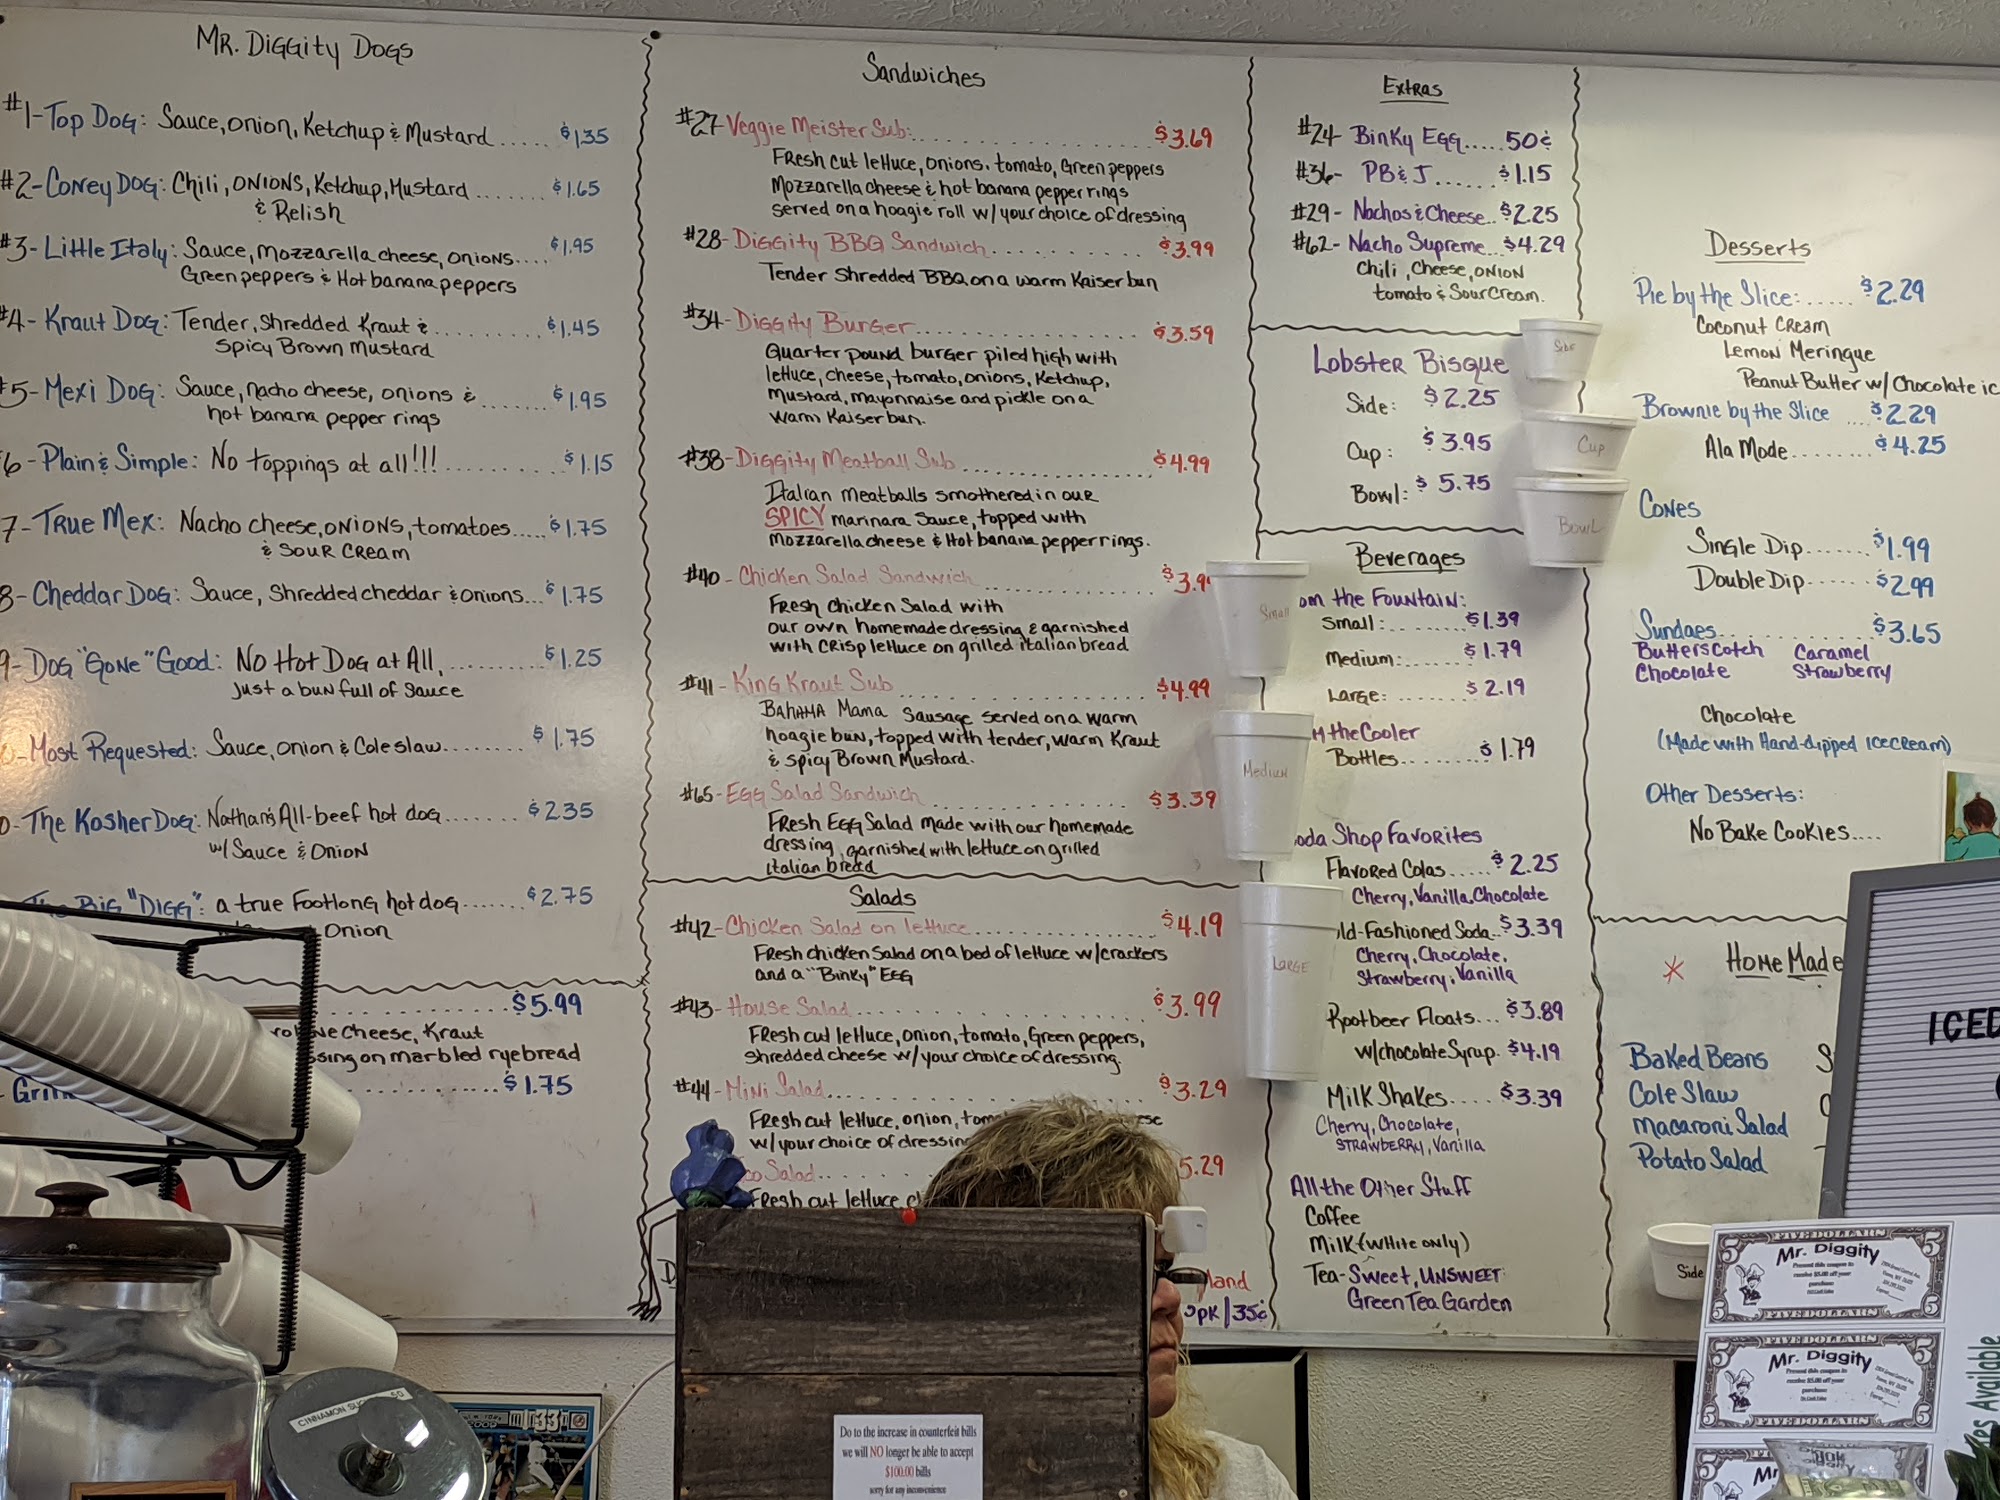 Mr. Diggity Dogs
#1- Top Dog: Sauce, onion, Ketchup & Mustard..... $1.35
#2- Coney Dog: Chili, ONIONS, Ketchup, Mustard....... $1.65
& Relish
#3- Little Italy: Sauce, Mozzarella cheese, onions.... $1.95
Green peppers & Hot banana peppers
#4- Kraut Dog: Tender, Shredded Kraut &.......... $1.45
Spicy Brown Mustard
#5- Mexi Dog: Sauce, nacho cheese, onions &....... $1.95
hot banana pepper rings
6- Plain & Simple: No toppings at all!!!.......... $1.15
7- True Mex: Nacho cheese, ONIONS, tomatoes..... $1.75
& SOUR CREAM
8- Cheddar Dog: Sauce, Shredded cheddar & onions... $1.75
9- Dog "Gone" Good: No Hot Dog at All,......... $1.25
Just a bun full of sauce
Most Requested: Sauce, onion & Coleslaw........ $1.75
0- The Kosher Dog: Nathan's All-beef hot dog....... $2.35
w/ Sauce & Onion
The Big "Digg": a true Footlong hot dog...... $2.75
Onion
$5.99
Cheese, Kraut
on marbled rye bread
$1.75
Sandwiches
#27- Veggie Meister Sub:................ $3.69
Fresh cut lettuce, onions, tomato, Green peppers
Mozzarella cheese & hot banana pepper rings
served on a hoagie roll w/ your choice of dressing
#28- Diggity BBQ Sandwich........... $3.99
Tender Shredded BBQ on a warm Kaiser bun
#34- Diggity Burger................ $3.59
Quarter pound burger piled high with
lettuce, cheese, tomato, onions, Ketchup,
Mustard, mayonnaise and pickle on a
warm Kaiser bun.
#38- Diggity Meatball Sub............... $4.99
Italian meatballs smothered in our
SPICY marinara sauce, topped with
Mozzarella cheese & Hot banana pepper rings.
#40- Chicken Salad Sandwich.............. $3.9
Fresh chicken salad with
our own homemade dressing & garnished
with crisp lettuce on grilled italian bread
#41- King Kraut Sub................ $4.99
Bahama Mama Sausage served on a warm
hoagie bun, topped with tender, warm Kraut
& spicy Brown Mustard.
#65- Egg Salad Sandwich............... $3.39
Fresh Egg Salad made with our homemade
dressing, garnished with lettuce on grilled
italian bread
Salads
#42- Chicken Salad on lettuce............... $4.19
Fresh chicken salad on a bed of lettuce w/crackers
and a "Binky" EGG
#43- House Salad................ $3.99
Fresh cut lettuce, onion, tomato, Green peppers,
shredded cheese w/ your choice of dressing.
#44- Mini Salad................ $3.29
Fresh cut lettuce, onion,
w/ your choice of dressing
Salad.. 5.29
Fresh cut lettuce,
land
pk/35¢
Extras
#24- Binky Egg..... 50¢
#36- PB & J....... $1.15
#29- Nachos & Cheese.. $2.25
#62- Nacho Supreme... $4.29
Chili, Cheese, ONION
tomato & Sour Cream.
Lobster Bisque
Side: $2.25
Cup: $3.95
Bowl: $5.75
Side
Cup
Bowl
Beverages
om the Fountain:
Small:.......... $1.39
Medium:......... $1.79
Large:......... $2.19
the Cooler
Bottles......... $1.79
Small
Medium
Large
oda Shop Favorites
Flavored Colas..... $2.25
Cherry, Vanilla, Chocolate
ld-Fashioned Soda.. $3.39
Cherry, Chocolate,
Strawberry, Vanilla
Rootbeer Floats... $3.89
w/chocolate Syrup. $4.19
Milk Shakes..... $3.39
Cherry, Chocolate,
STRAWBERRY, Vanilla
All the Other Stuff
Coffee
Milk (white only)
Tea- Sweet, UNSWEET
Green Tea Garden
Desserts
Pie by the Slice:...... $2.29
Coconut Cream
Lemon Meringue
Peanut Butter w/ Chocolate ic
Brownie by the Slice.... $2.29
Ala Mode........ $4.25
Cones
Single Dip....... $1.99
Double Dip...... $2.99
Sundaes............ $3.65
Butterscotch Caramel
Chocolate Strawberry
Chocolate
(Made with Hand-dipped icecream)
Other Desserts:
No Bake Cookies....
* Home Made
Baked Beans
Cole Slaw
Macaroni Salad
Potato Salad
Side
ICED
FIVE DOLLARS
Mr. Diggity
Present this coupon to
receive $5.00 off your
purchase
FIVE DOLLARS
FIVE DOLLARS
Mr. Diggity
Present this coupon to
receive $5.00 off your
purchase
FIVE DOLLARS
Available
CINNAMON
Do to the increase in counterfeit bills
we will NO longer be able to accept
$100.00 bills
sorry for any inconvenience